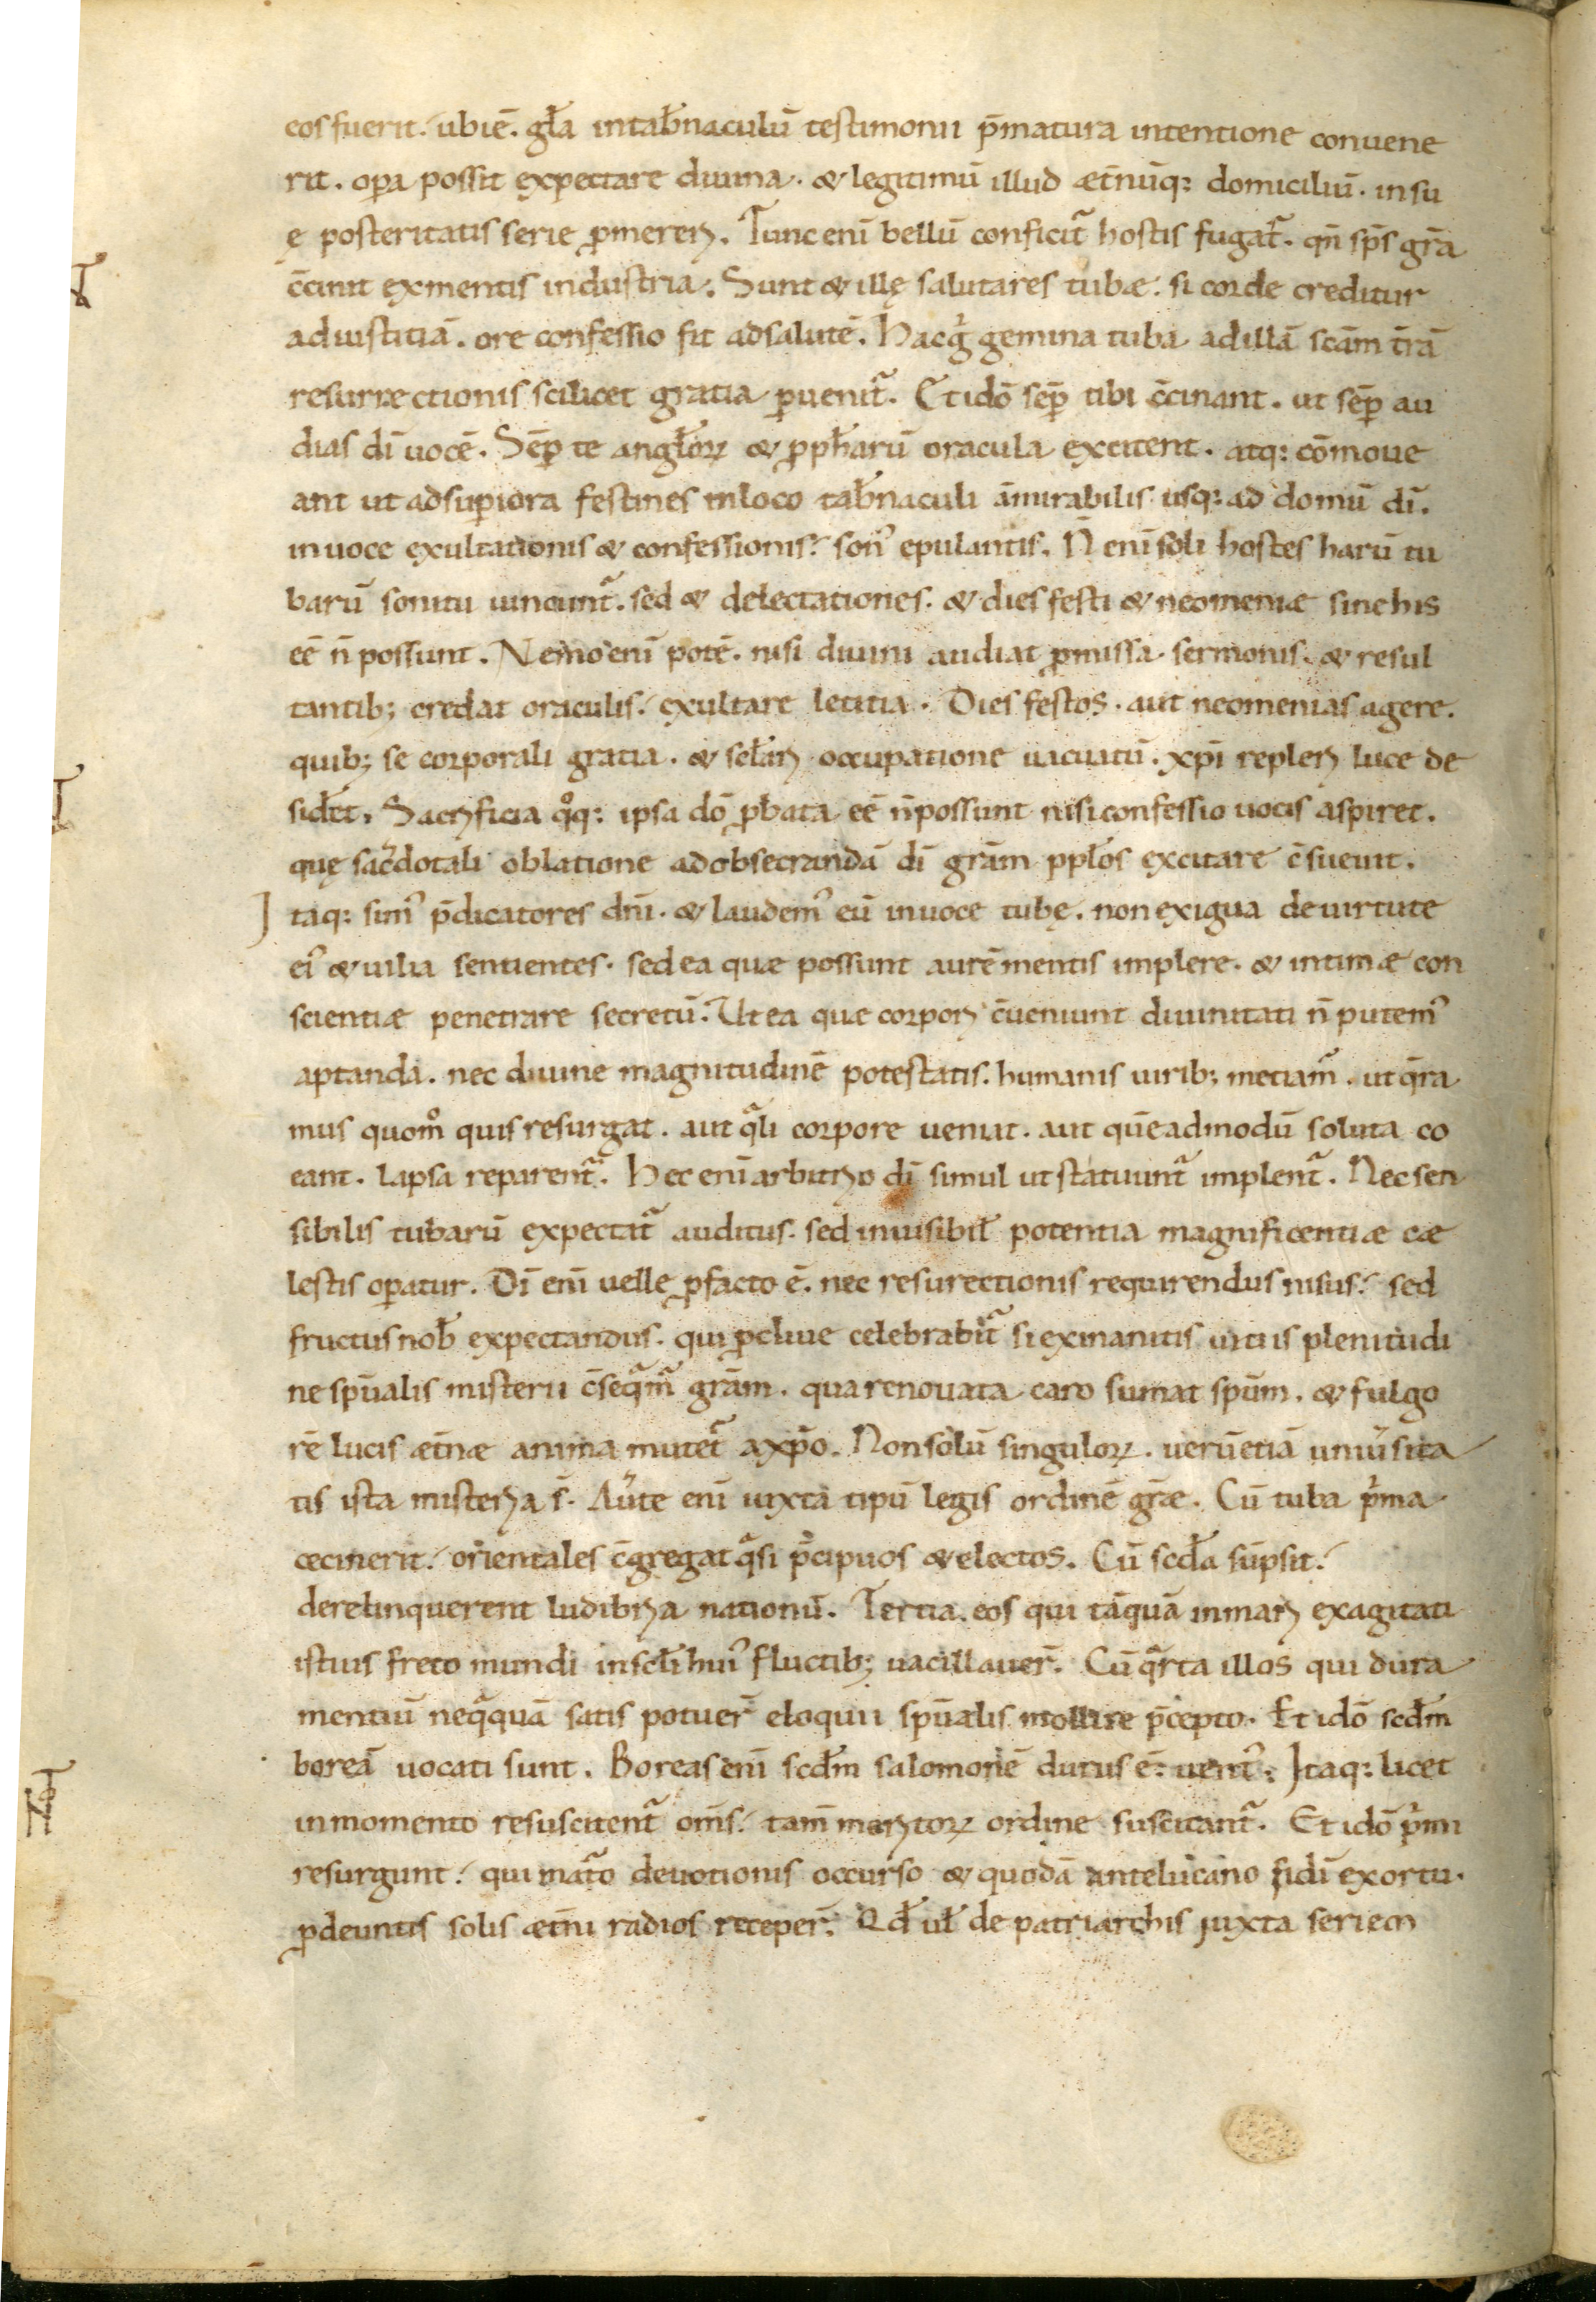 eos fuerit. ubi ē. gła in tab̄naculū testimonii p̄matura intentione conuene
rit. oꝑa possit expectare diuina. & legitimū illud æt̄nūq; domiciliū. in su
ę posteritatis serie ꝓmereri. Tunc enī bellū conficit᷑ hostis fugat᷑. qn̄ sp̄s gr̄a
c̄cinit ex mentis industria. Sunt & illę salutares tubæ. si corde creditur
ad iustitiā. ore confessio fit ad salutē. Hac gͥ gemina tuba ad illā sc̄am t̄rā
resurræctionis scilicet gratia ꝑuenit᷑. Et idō seꝑ tibi c̄cinant. ut seꝑ au
dias dī uocē. Sēꝑ te angłoꝝ & ꝓpħarū oracula excitent. atq; cōmoue
ant ut ad suꝑiora festines in loco tab̄naculi āmirabilis usq; ad domū dī.
in uoce exultationis & confessionis. sonꝰ epulantis. N̄ enī soli hostes harū tu
barū sonitu uincunt᷑. sed & delectationes. & dies festi & neomeniæ sine his
eē n̄ possunt. Nemo enī potē. nisi diuini audiat ꝓmissa sermonis. & resul
tantib; credat oraculis. exultare letitia. Dies festos. aut neomenias agere.
quib; se corporali gratia. & seƚari occupatione uacuatū. xp̄i repleri luce de
sideτ̄. Sacrificia qͦq; ipsa dō ꝓbata eē n̄ possunt nisi confessio uocis aspiret.
quę sac̄dotali oblatione ad obsecrandā dī gr̄am ppłos excitare c̄sueuit.
Itaq; simꝰ p̄dicatores dn̄i. & laudemꝰ eū in uoce tubę. non exigua de uirtute
eiꝰ & uilia sentientes. sed ea quæ possunt aurē mentis implere. & intimæ con
scientiæ penetrare secretū. Ut ea quæ corpori c̄ueniunt diuinitati n̄ putemꝰ
aptanda. nec diuine magnitudinē potestatis. humanis uirib; metiam᷑. ut q̄ra
mus quom̊ quis resurgat. aut qͣli corpore ueniat. aut quēadmodū soluta co
eant. lapsa reparent᷑. Hec enī arbitrio dī simul ut statuunt᷑ implent᷑. Nec sen
sibilis tubarū expectat᷑ auditus. sed inuisibiƚ potentia magnificentiæ cæ
lestis oꝑatur. Dī enī uelle ꝓ facto ē. nec resurectionis requirendus nisus. sed
fructus nob̄ expectandus. qui ꝓcliue celebrabit᷑ si exinanitis uitiis plenitudi
ne sp̄ualis misterii c̄seqͣm᷑ gr̄am. qua renouata caro sumat sp̄um. & fulgo
rē lucis æt̄næ anima mutet᷑ a xp̄o. Non solū singuloꝝ. uerū etiā uniūsita
tis ista misteria s̄. Aūte enī iuxta tipū legis ordinē gr̄æ. Cū tuba pͥma
cecinerit. orientales c̄gregat qͣsi p̄cipuos & electos. Cū scd̄a sūpsit.
derelinquerent ludibria nationū. Tertia. eos qui tāquā in mari exagitati
istius freto mundi in scłi huiꝰ fluctib; uacillauer̄. Cū qͣrta illos qui dura
mentiū neqͣquā satis potuer̄ eloquii sp̄ualis mollire p̄cepto. Et idō scd̄m
boreā uocati sunt. Boreas enī scd̄m salomonē durus ē uentꝰ. Itaq; licet
in momento resuscitent᷑ om̄s. tam̄ meritoꝝ ordine suscitant᷑. Et idō pͥmi
resurgunt. qui mat᷑o deuotionis occurso & quodā antelucano fidī exortu.
ꝓdeuntis solis æt̄ni radios receper̄. Qd̄ uƚ de patriarchis iuxta seriem